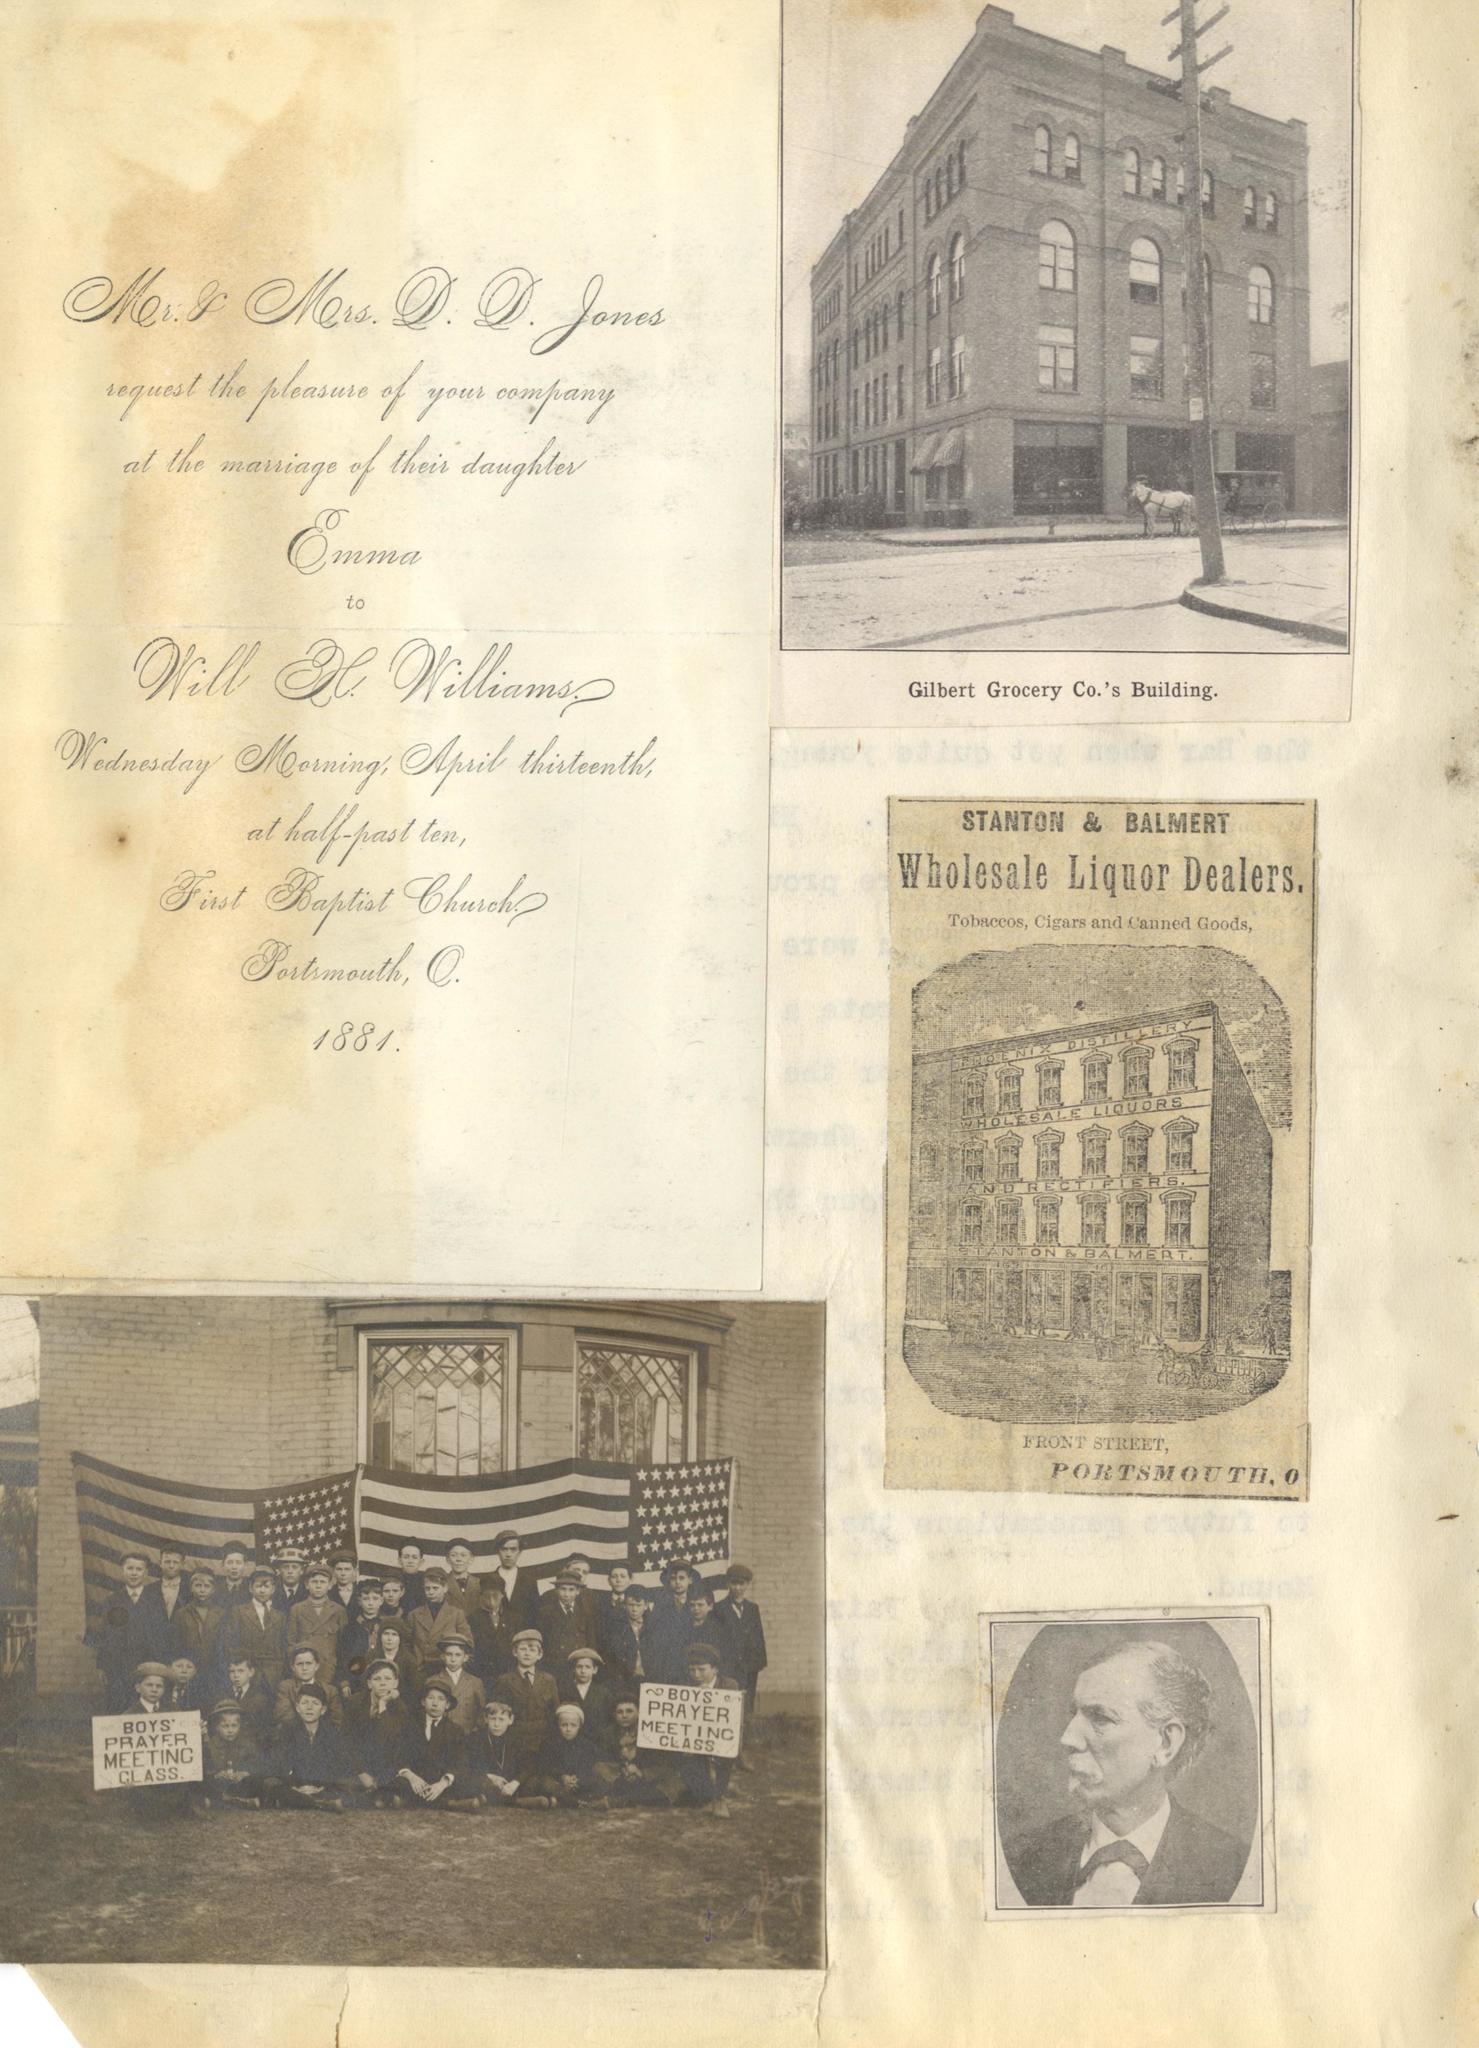 Mr. & Mrs. D. D. Jones
request the pleasure of your company
at the marriage of their daughter
Emma
to
Will H. Williams,
Wednesday Morning, April thirteenth,
at half-past ten,
First Baptist Church,
Portsmouth, O.
1881.
Gilbert Grocery Co.'s Building.
STANTON & BALMERT
Wholesale Liquor Dealers.
Tobaccos, Cigars and Canned Goods,
PHOENIX DISTILLERY
WHOLESALE LIQUORS
AND RECTIFIERS.
STANTON & BALMERT.
FRONT STREET,
PORTSMOUTH, O
BOYS'
PRAYER
MEETING
CLASS.
BOYS'
PRAYER
MEETING
CLASS
the Bar when yet quite young,
were
to future generations the
Mound.